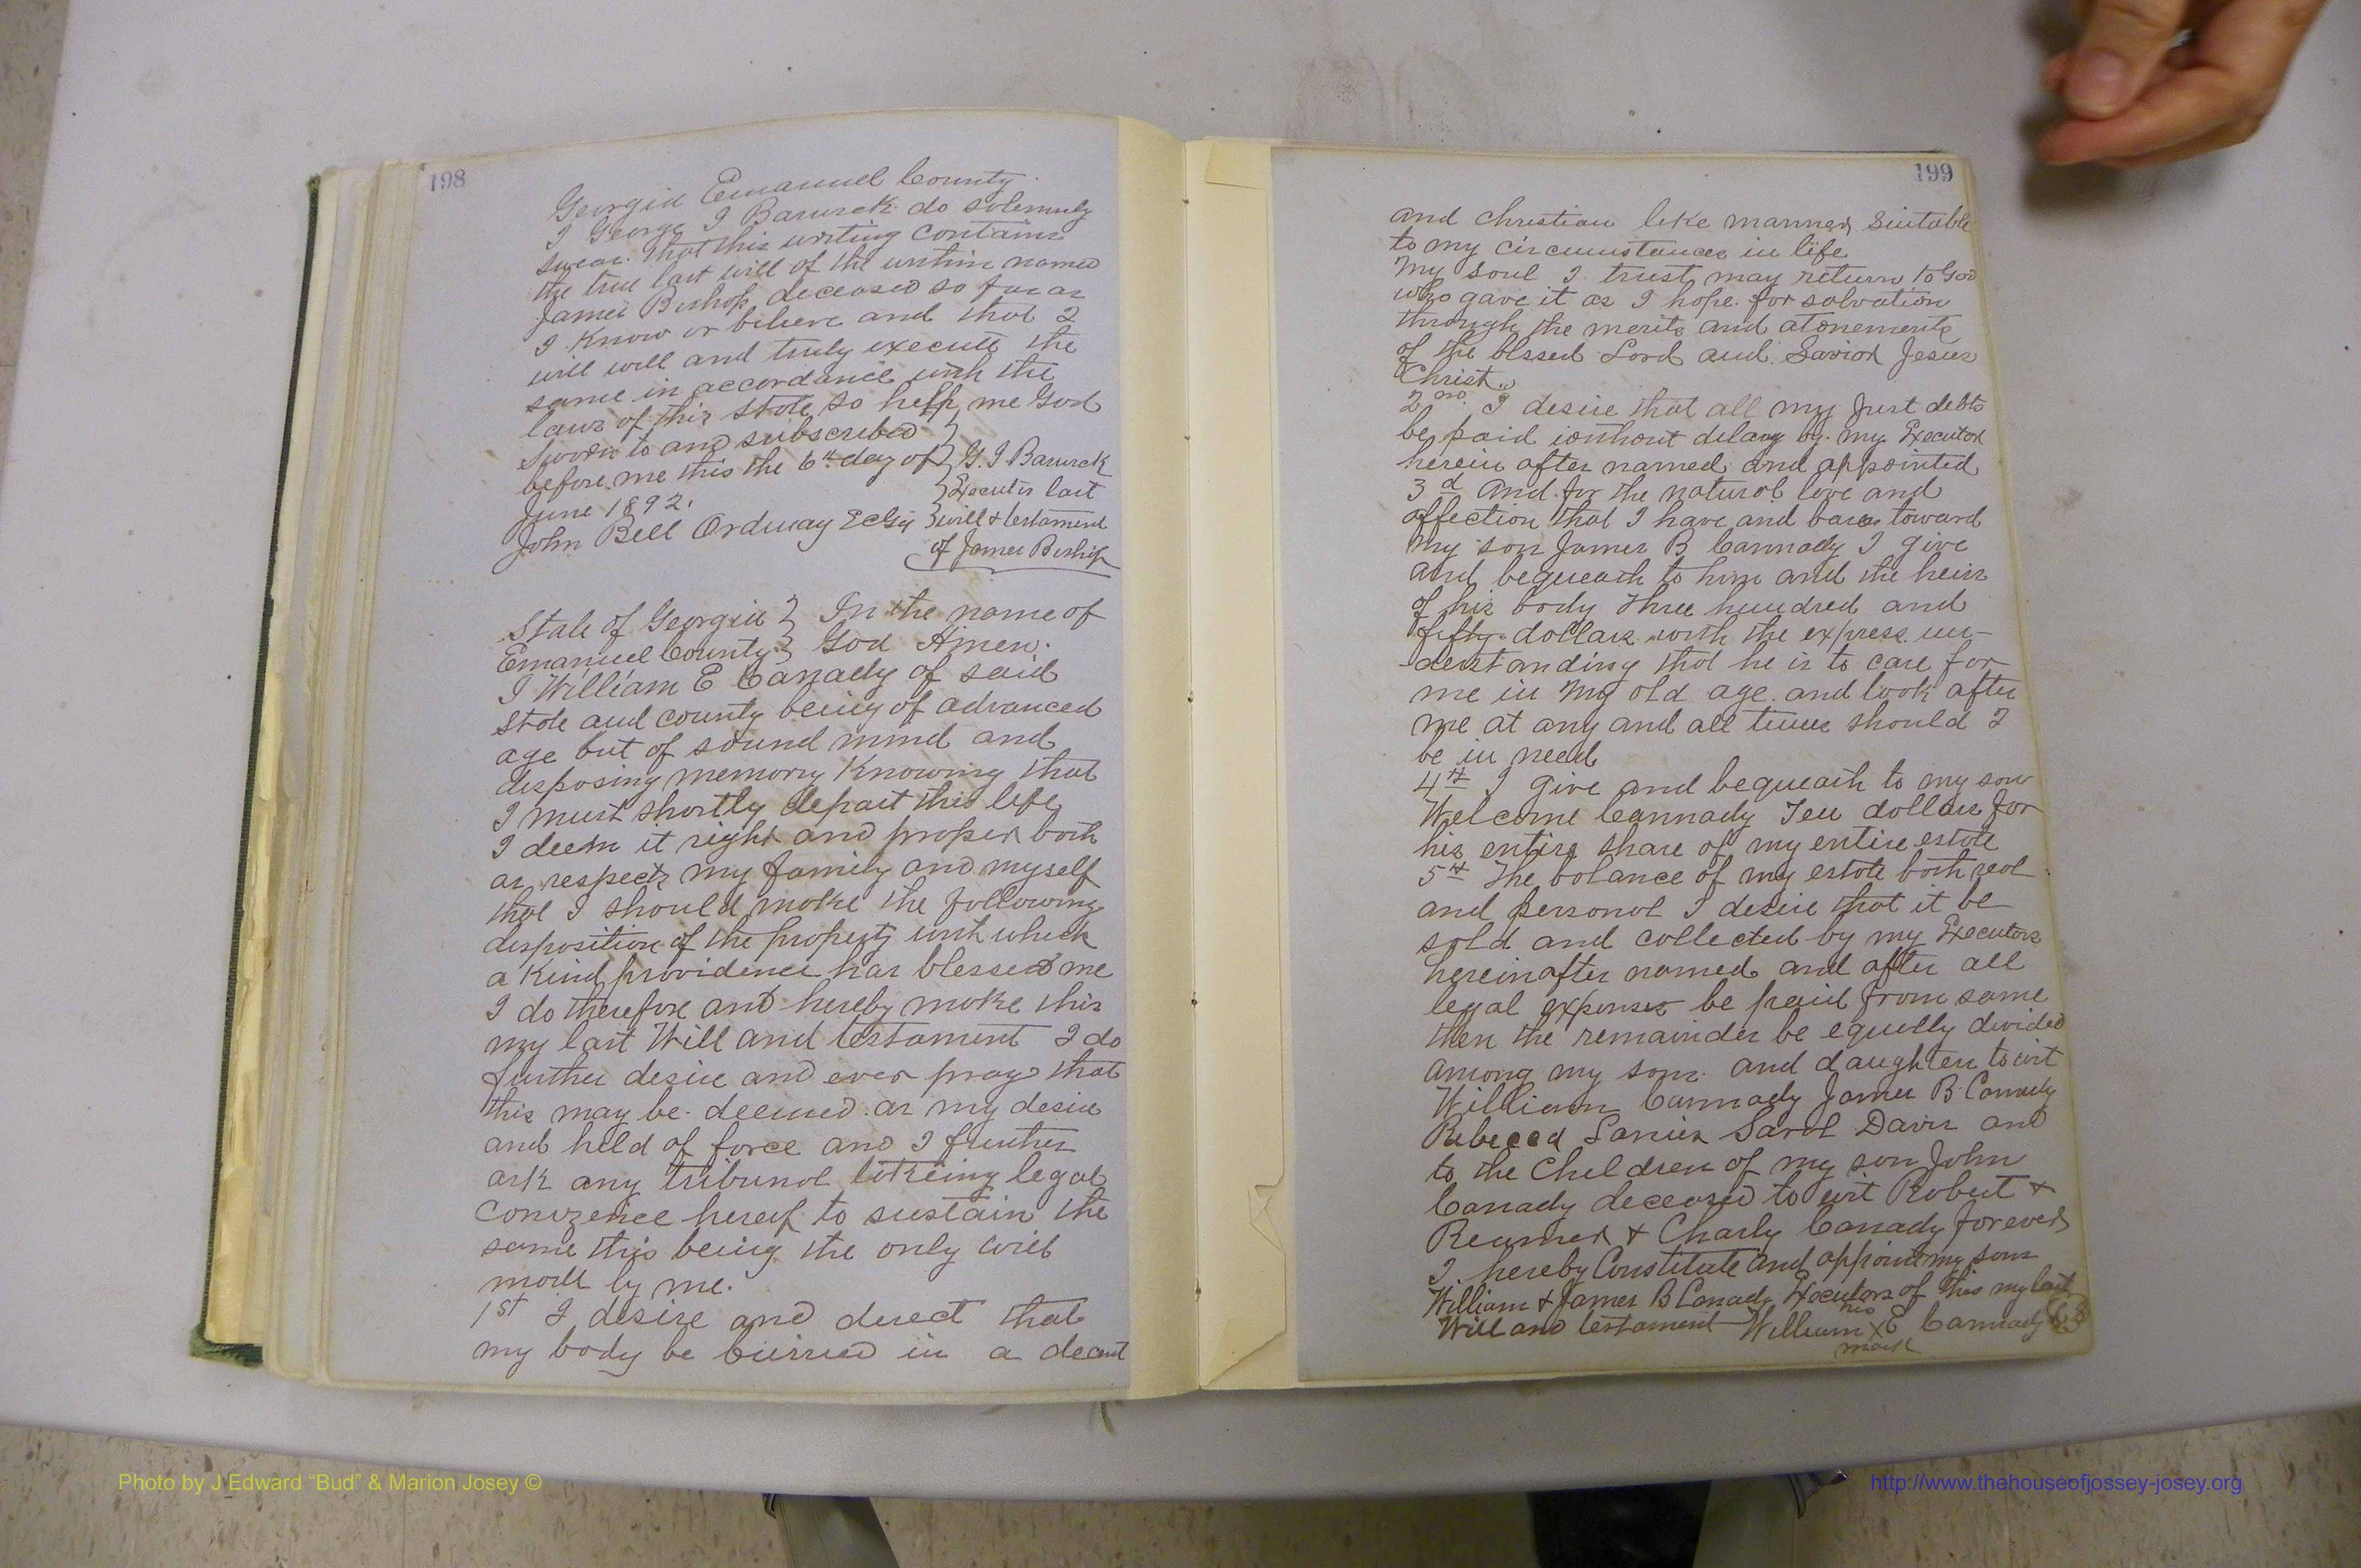 198
Georgia Emanuel County.
I George I Barwick do solemnly
swear that this writing contains
the true last will of the within named
James Bishop deceased so far as
I know or believe and that I
will well and truly execute the
same in accordance with the
laws of this state so help me God
Sworn to and subscribed }
before me this the 6th day of } G. I. Barwick
June 1892. } Executor last
John Bell Ordinary } will & testament
of James Bishop
State of Georgia } In the name of
Emanuel County } God Amen.
I William E Canady of said
state and county being of advanced
age but of sound mind and
disposing memory Knowing that
I must shortly depart this life
I deem it right and proper both
as respects my family and myself
that I should make the following
disposition of the property with which
a Kind providence has blessed me
I do therefore and hereby make this
my last Will and testament I do
further desire and ever pray that
this may be deemed as my desire
and held of force and I further
ask any tribunal legal
hereof to sustain the
same this being the only will
made by me.
1st I desire and direct that
my body be burried in a decent
199
and christian like manner suitable
to my circumstances in life
My soul I trust may return to God
who gave it as I hope for salvation
through the merits and atonements
of the blessed Lord and Savior Jesus
Christ.
2nd. I desire that all my just debts
be paid without delay by my Executor
herein after named and appointed
3d And for the natural love and
affection that I have and toward
my son James B Cannady I give
and bequeath to him and the heirs
of his body three hundred and
fifty dollars with the express un-
-derstanding that he is to care for
me in my old age and look after
me at any and all times should I
be in need
4th I give and bequeath to my son
Welcome Cannady Ten dollars for
his entire share of my entire estate
5th The balance of my estate both real
and personal I desire that it be
sold and collected by my Executors
hereinafter named and after all
legal expenses be paid from same
then the remainder be equally divided
among my sons and daughters to wit
William Cannady James B Cannady
Rebecca Lanier Sarah Davis and
to the Children of my son John
Canady deceased to wit Robert &
Remer & Charly Canady forever
I hereby Constitute and appoint my sons
William & James B Canady Executors of this my last
Will and testament William his X mark E Cannady
Photo by J Edward “Bud” & Marion Josey ©
http://www.thehouseofjossey-josey.org